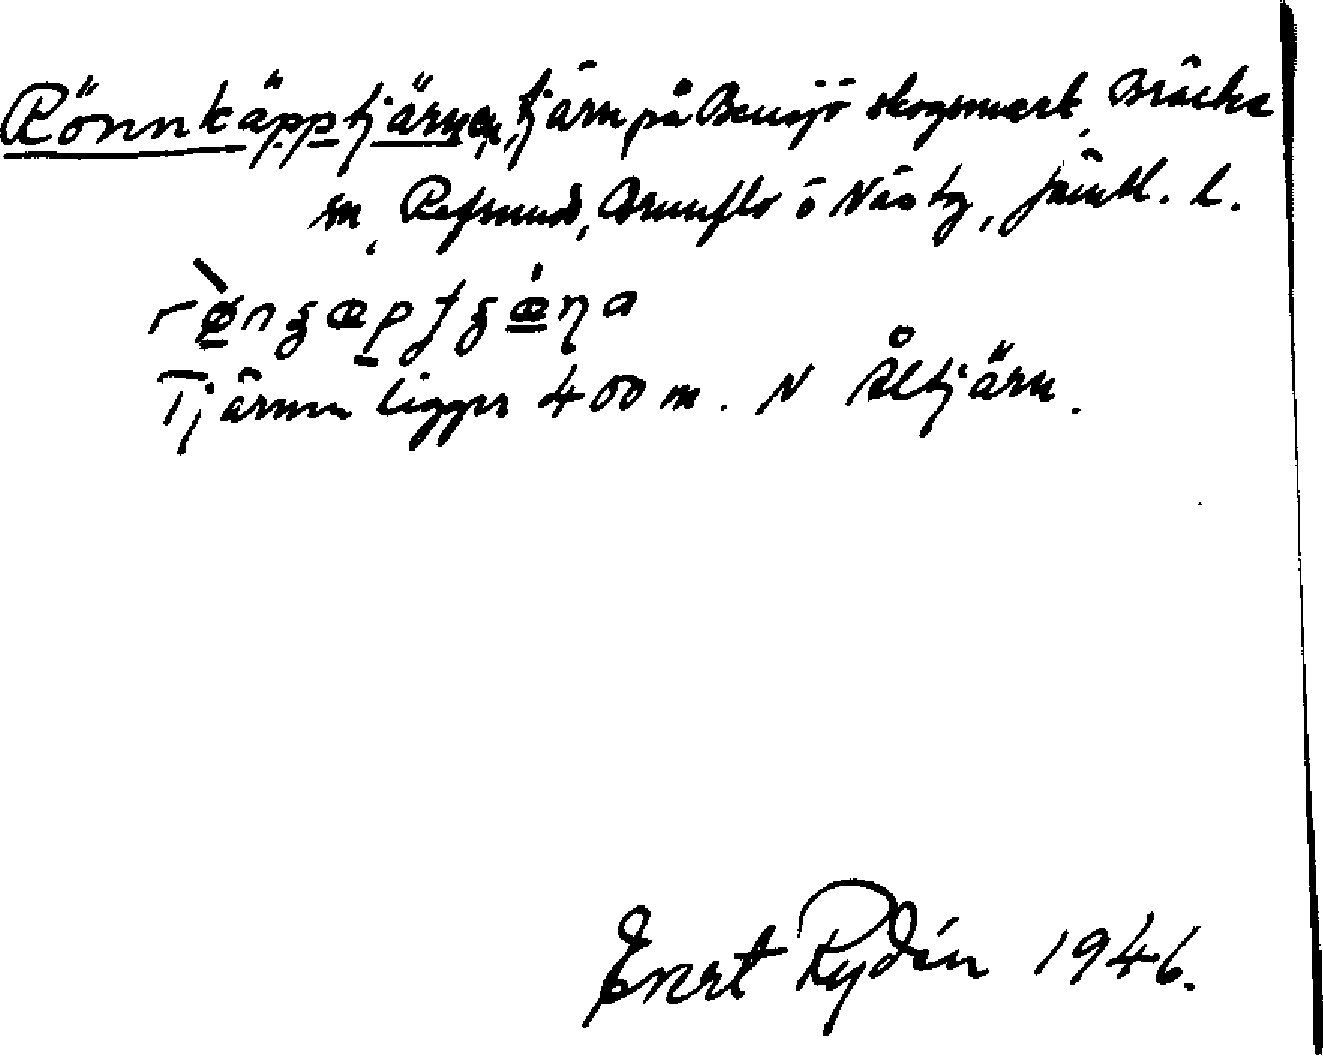 Rönnkäpptjärnen, tjärn på Bensjö skogsmark, Bräcke
sn, Refsund, Brunflo o Näs tg, Jämtl. l.
Tjärnen ligger 400 m. N Åltjärn.
Evert Rydén 1946.